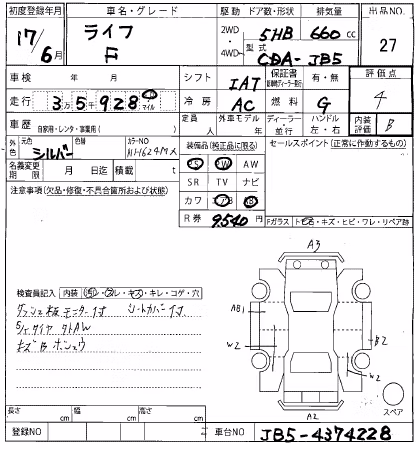 初度登録年月 車名・グレード 駆動 ドア数・形状 排気量 出品NO.
17/6月 ライフ F 2WD 4WD 5HB 660cc 27
型式 CBA-JB5
車検 年 月 シフト IAT 保証書 有・無 評価点
走行 3万5千928 km マイル 冷房 AC 燃料 G 4
車歴 自家用・レンタ・事業用( ) 定員 人 外車モデル 年 ディーラー 並行 ハンドル 左・右 内装評価 B
外色 元色 シルバー 色替 カラーNO
装備品(純正品に限る) セールスポイント(正常に作動するもの)
名義変更期限 月 日迄 積載 t
PS PW AW
SR TV ナビ
注意事項(欠品・修復・不具合箇所および状態)
カワ エアB ABS
R券 9540円
Fガラス トビ石・キズ・ヒビ・ワレ・リペア跡
A3
検査員記入 内装(汚レ・スレ・キズ・キレ・コゲ・穴
モニター1寸 シートカバー1寸
AB1
W2
B2
W2
スペア
A2
長さ cm 幅 cm 高さ cm
登録NO 車台NO JB5-4374228